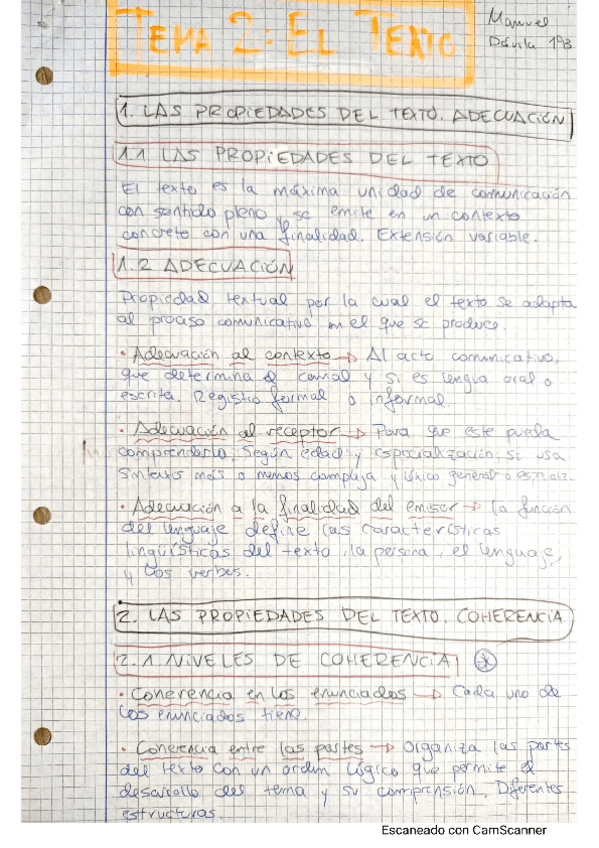 TEMA 2: EL TEXTO
Manuel
Dávila 1ºB
1. LAS PROPIEDADES DEL TEXTO. ADECUACIÓN
1.1 LAS PROPIEDADES DEL TEXTO
El texto es la máxima unidad de comunicación
con sentido pleno y se emite en un contexto
concreto con una finalidad. Extensión variable.
1.2 ADECUACIÓN
Propiedad textual por la cual el texto se adapta
al proceso comunicativo en el que se produce.
· Adecuación al contexto → Al acto comunicativo,
que determina el canal y si es lengua oral o
escrita. Registro formal o informal.
· Adecuación al receptor → Para que este pueda
comprenderlo. Según edad y especialización, se usa
sintaxis más o menos compleja y léxico general o especializ.
· Adecuación a la finalidad del emisor → La función
del lenguaje define las características
lingüísticas del texto, la persona, el lenguaje,
y los verbos.
2. LAS PROPIEDADES DEL TEXTO. COHERENCIA
2.1 NIVELES DE COHERENCIA *
· Coherencia en los enunciados → Cada uno de
los enunciados tiene.
· Coherencia entre las partes → Organiza las partes
del texto con un orden lógico que permite el
desarrollo del tema y su comprensión. Diferentes
estructuras.
Escaneado con CamScanner